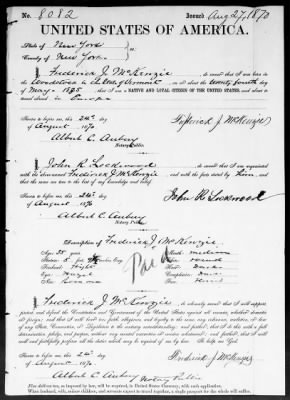 No. 8082 Issued Aug 27, 1870
UNITED STATES OF AMERICA.
State of New York
County of New York } ss.
I, Frederick J. McKenzie, do swear that I was born in the
in State of Vermont on or about the twenty fourth day of
May, 18 ; that I am a NATIVE AND LOYAL CITIZEN OF THE UNITED STATES, and about
to travel abroad in Europe
Sworn to before me this 24th Frederick J. McKenzie
day of August 1870
Albert C. Aubery
Notary Public.
I, John R. Lockwood, do swear that I am acquainted
with the above-named Frederick J. McKenzie and with the facts stated by him, and
that the same are true to the best of my knowledge and belief.
Sworn to before me this 24th John R. Lockwood
day of August 1870
Albert C. Aubery
Notary Public
Description of Frederick J. McKenzie
Age: years Mouth: medium
Stature: 5 feet inches Eng. Chin: round
Forehead: High Hair: Dark
Eyes: Hazel Complexion: Dark
Nose: Face:
Paid
I, Frederick J. McKenzie, do solemnly swear that I will support, protect,
and defend the Constitution and Government of the United States against all enemies, whether domestic
or foreign; and that I will bear true faith, allegiance, and loyalty to the same, any ordinance, resolution, or law
of any State, Convention, or Legislature to the contrary notwithstanding; and further, that I do this with a full
determination, pledge, and purpose, without any mental reservation or evasion whatsoever; and further, that I will
well and faithfully perform all the duties which may be required of me by law. So help me God.
Sworn to before me this 24 Frederick J. McKenzie
day of August 1870
Albert C. Aubery
Notary Public